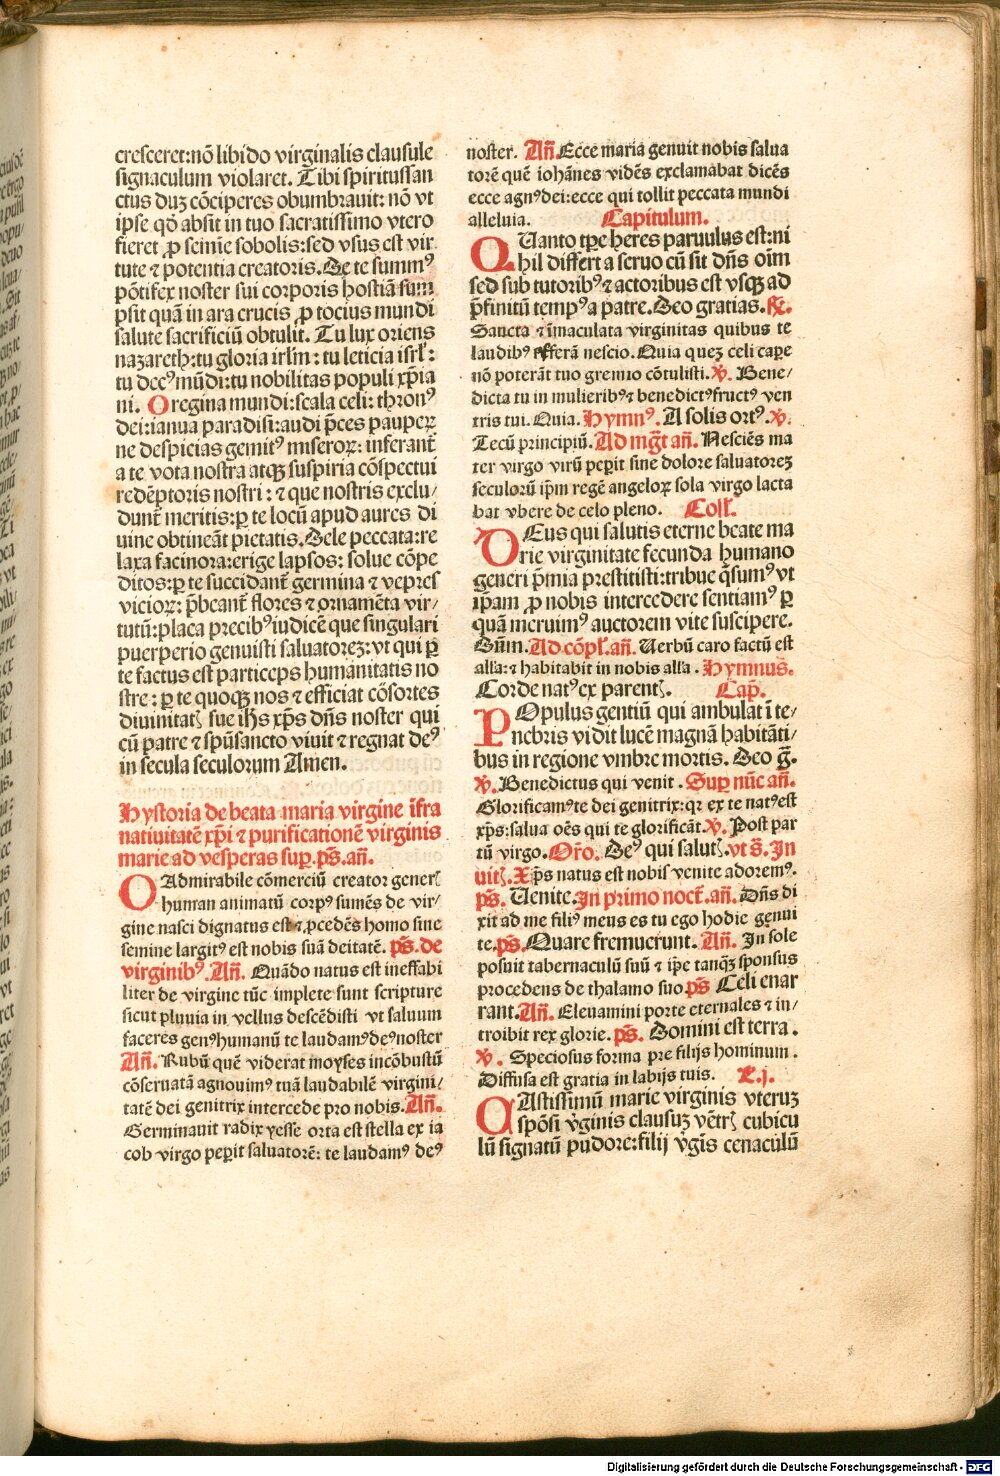 cresceret:nõ libido virginalis clausule
signaculum violaret. Tibi spiritussan
ctus duꝫ cõciperes obumbrauit: nõ vt
ipse qď absit in tuo sacratissimo vtero
fieret ꝓ semĩe sobolis:sed vsus est vir
tute ⁊ potentia creatoris. De te summꝰ
põtifex noster sui corporis hostiã sum
psit quã in ara crucis ꝓ tocius mundi
salute sacrificiũ obtulit. Tu lux oriens
nazareth:tu gloria irlm̃:tu leticia isrl̃:
tu decꝰ mũdi:tu nobilitas populi xp̃ia
ni. O regina mundi:scala celi:thronꝰ
dei:ianua paradisi:audi p̃ces pauperꝝ
ne despicias gemitꝰ miseroꝝ: inferant̃
a te vota nostra atqꝫ suspiria cõspectui
redẽptoris nostri: ⁊ que nostris exclu/
dunt̃ meritis:ꝑ te locũ apud aures di
uine obtineãt pietatis. Dele peccata:re
laxa facinora:erige lapsos: solue cõpe
ditos:ꝑ te succidant̃ germina ⁊ vepres
vicioꝝ: p̃beant̃ flores ⁊ ornamẽta vir/
tutũ:placa precibꝰ iudicẽ que singulari
puerperio genuisti saluatoreꝫ:vt qui ꝑ
te factus est particeps humanitatis no
stre: ꝑ te quoqꝫ nos ⁊ efficiat cõsortes
diuinitatꝭ sue ihs̃ xp̃s dñs noster qui
cũ patre ⁊ spũsancto viuit ⁊ regnat deꝰ
in secula seculorum Amen.
Hystoria de beata maria virgine ĩfra
natiuitatẽ xp̃i ⁊ purificationẽ virginis
marie ad vesperas suꝑ. pš. añ.
O Admirabile cõmerciũ creator generꝭ
human animatũ corpꝰ sumẽs de vir/
gine nasci dignatus est ⁊ ꝓcedẽs homo sine
semine largitꝰ est nobis suã deitatẽ. pš. de
virginibꝰ. Añ. Quãdo natus est ineffabi
liter de virgine tũc implete sunt scripture
sicut pluuia in vellus descẽdisti vt saluum
faceres genꝰ humanũ te laudamꝰ deꝰ noster
Añ. Rubũ quẽ viderat moyses incõbustũ
cõseruatã agnouimꝰ tuã laudabilẽ virgini/
tatẽ dei genitrix intercede pro nobis. Añ.
Germinauit radix yesse orta est stella ex ia
cob virgo peperit saluatorẽ: te laudamꝰ deꝰ
noster. Añ. Ecce maria genuit nobis salua
torẽ quẽ iohãnes vidẽs exclamabat dicẽs
ecce agnꝰ dei:ecce qui tollit peccata mundi
alleluia. Capitulum.
QUanto tꝑe heres paruulus est:ni
hil differt a seruo cũ sit dñs oĩm
sed sub tutoribꝰ ⁊ actoribus est vsqꝫ ad
p̃finitũ tempꝰ a patre. Deo gratias. ℟.
Sancta ⁊ ĩmaculata virginitas quibus te
laudibꝰ efferã nescio. Quia queꝫ celi capere
nõ poterãt tuo gremio cõtulisti. ℣. Bene/
dicta tu in mulieribꝰ ⁊ benedictꝰ fructꝰ ven
tris tui. Quia. Hymnꝰ. A solis ortꝰ. ℣.
Tecũ principiũ. Ad mg̃t añ. Nesciẽs ma
ter virgo virũ peperit sine dolore saluatoreꝫ
seculorũ ip̃m regẽ angeloꝝ sola virgo lacta
bat vbere de celo pleno. Coll̃.
DEus qui salutis eterne beate ma
rie virginitate fecunda humano
generi p̃mia prestitisti:tribue q̃sumꝰ vt
ip̃am ꝓ nobis intercedere sentiamꝰ ꝑ
quã meruimꝰ auctorem vite suscipere.
Dũm. Ad cõpl̃. añ. Uerbũ caro factũ est
alla:⁊ habitabit in nobis alla. Hymnus.
Corde natꝰ ex parentꝭ. Cap̃.
POpulus gentiũ qui ambulat ĩ te/
nebris vidit lucẽ magnã habitãti/
bus in regione vmbre mortis. Deo g̃.
℣. Benedictus qui venit. Suꝑ nũc añ.
Glorificamꝰ te dei genitrix:qꝛ ex te natꝰ est
xp̃s:salua oẽs qui te glorificãt. ℣. Post par
tũ virgo. Oro. Deꝰ qui salutꝭ. vt s̃. In
uitꝭ. Xp̃s natus est nobis venite adoremꝰ.
pš. Uenite. In primo noct̃. añ. Dñs di
xit ad me filiꝰ meus es tu ego hodie genui
te. pš. Quare fremuerunt. Añ. In sole
posuit tabernaculũ suũ ⁊ ip̃e tanqꝫ sponsus
procedens de thalamo suo pš Celi enar
rant. Añ. Eleuamini porte eternales ⁊ in/
troibit rex glorie. pš. Domini est terra.
℣. Speciosus forma pre filijs hominum.
Diffusa est gratia in labijs tuis. L. j.
CAstissimũ marie virginis vteruꝫ
spõsi ṽginis clausuꝫ vẽtrꝭ cubicu
lũ signatũ pudore:filij ṽgĩs cenaculũ
Digitalisierung gefördert durch die Deutsche Forschungsgemeinschaft - DFG